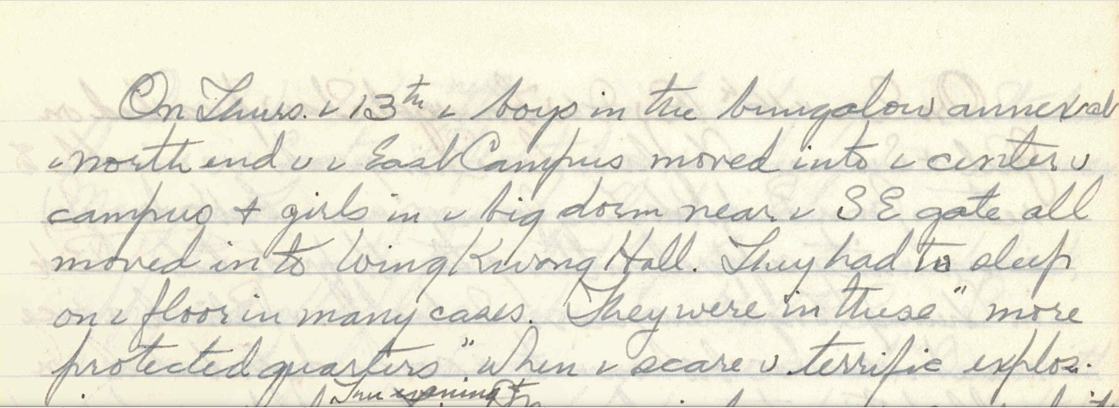 On Thurs. ι 13th ι boys in the bungalow annex at
ι north end υ ι East Campus moved into ι center υ
campus + girls in ι big dorm near ι SE gate all
moved into Wing Kwong Hall. They had to sleep
on ι floor in many cases. They were in these "more
protected quarters" when ι scare υ terrific explos.
evening